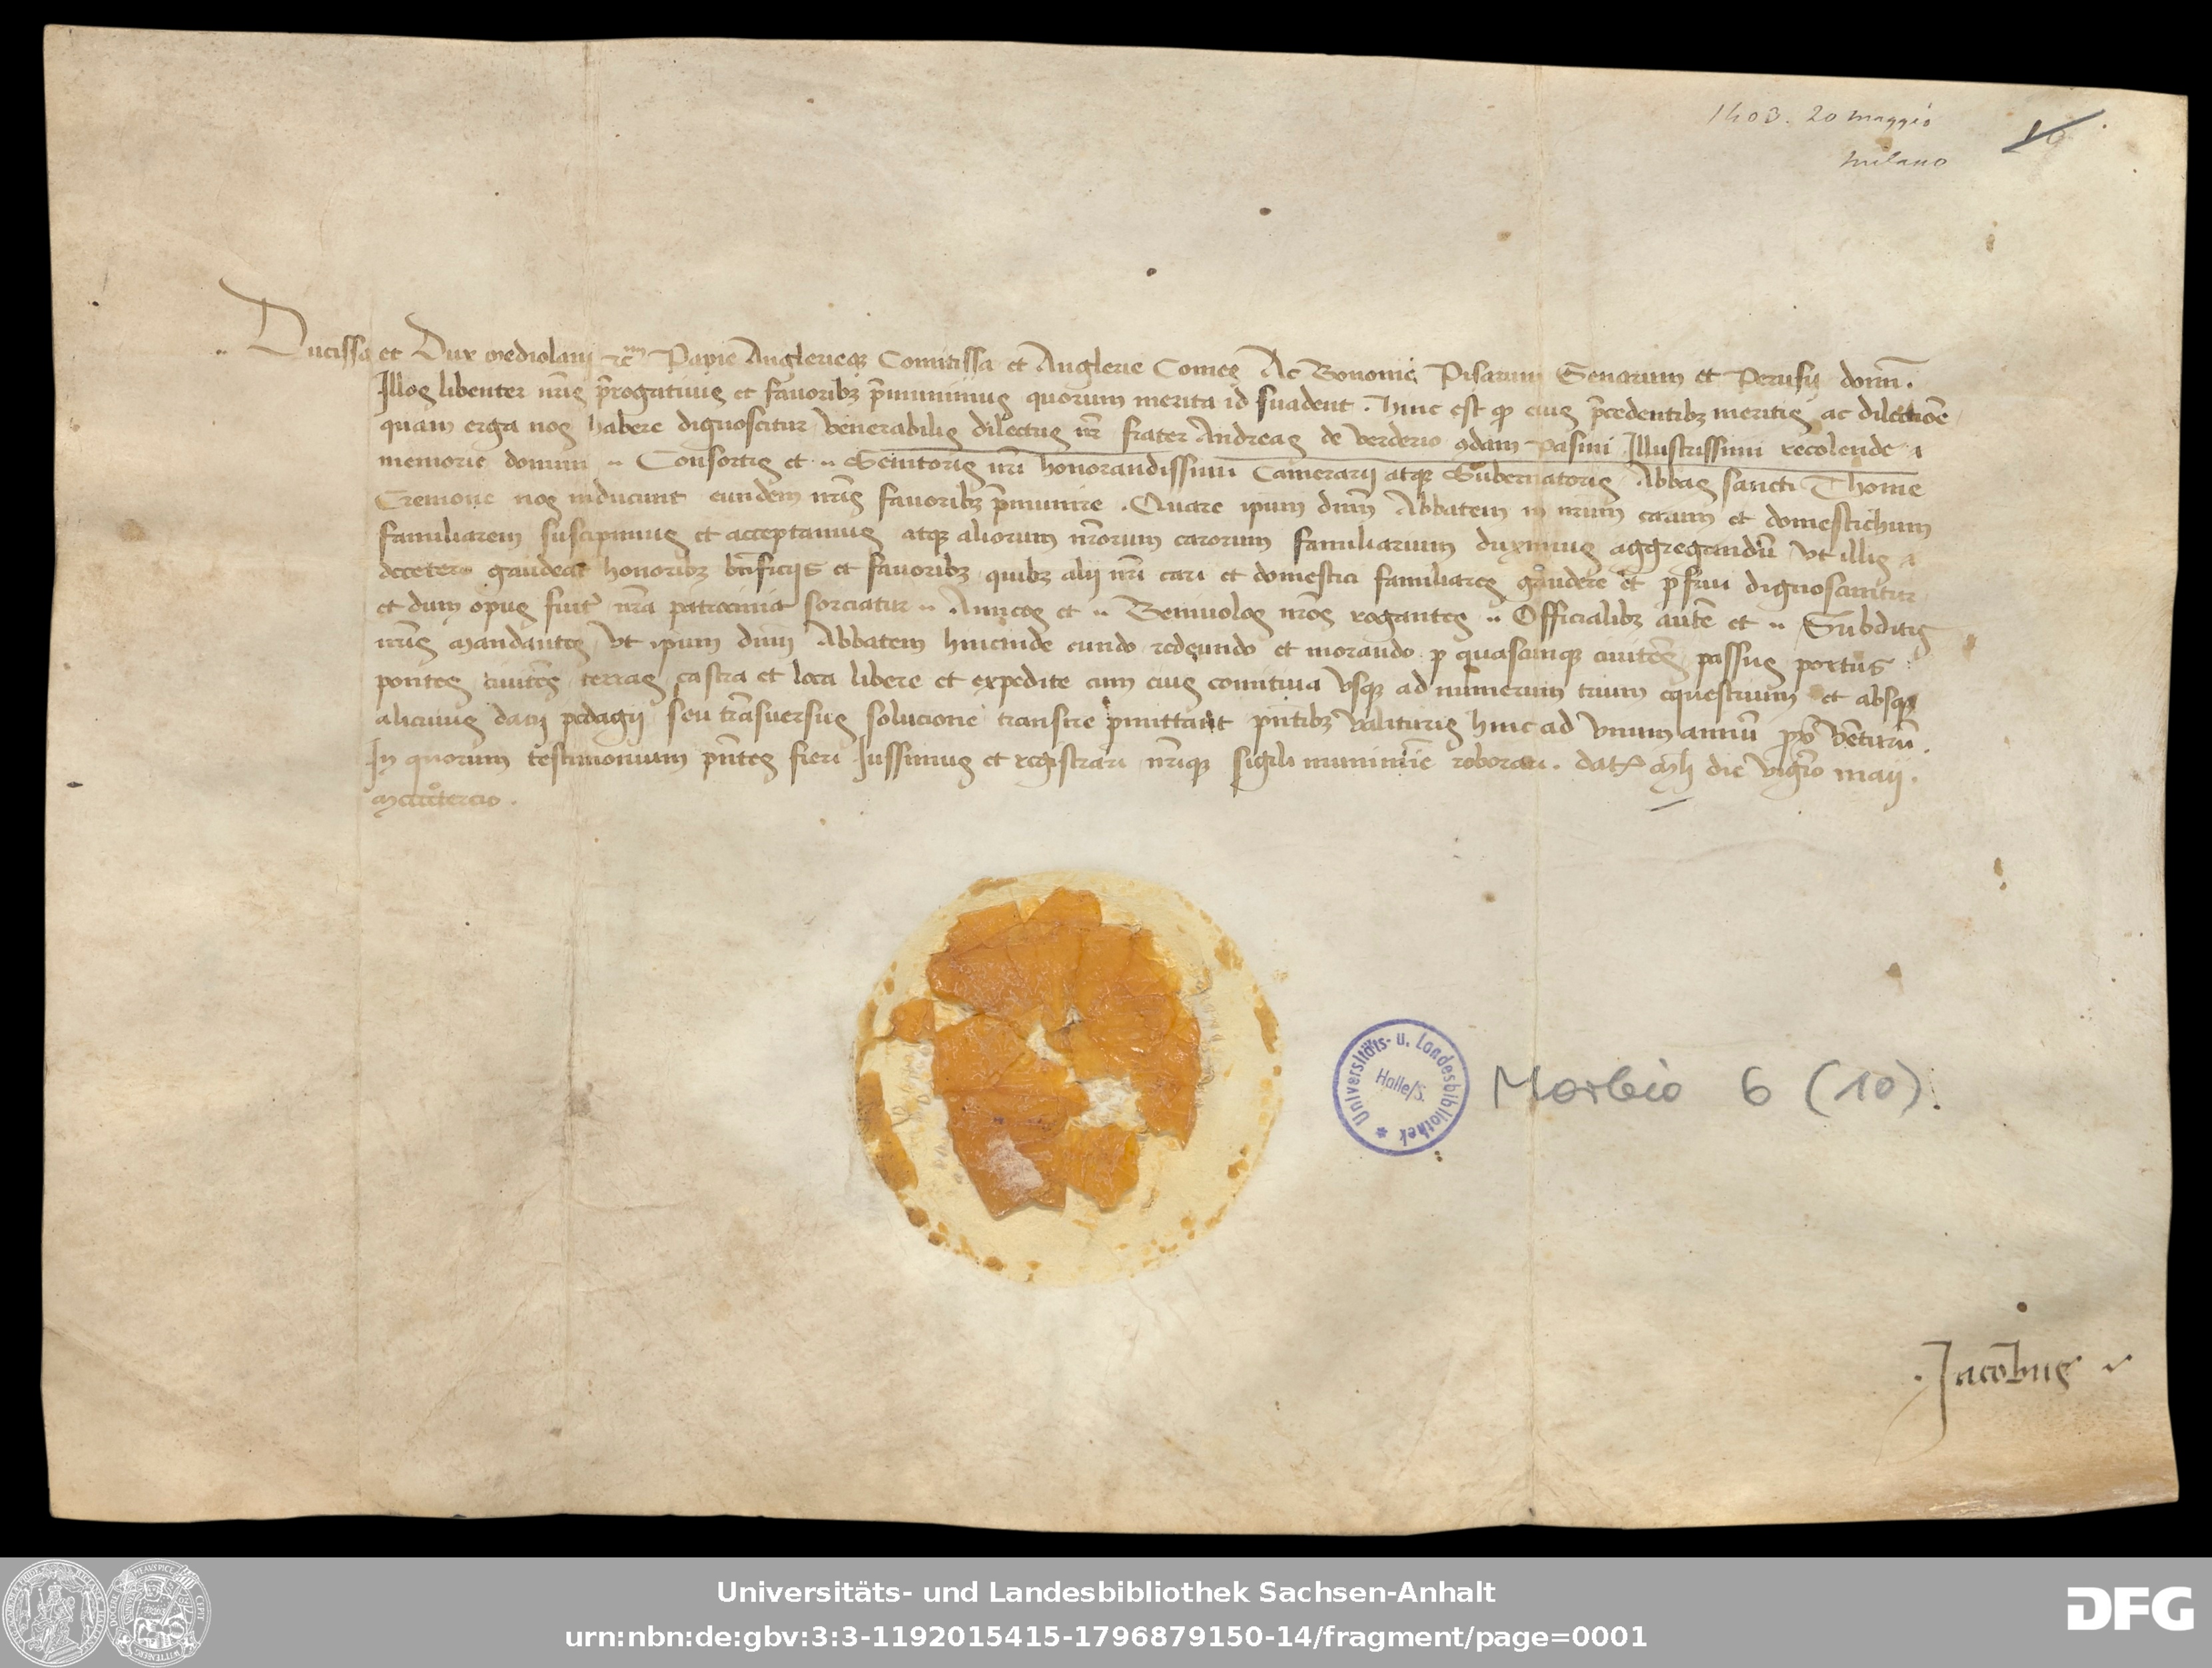 1403. 20 maggio
10
milano
.. Ducissa et Dux mediolani etc̃ Papie Anglerieqȝ Comitissa et Anglerie Comes Ac Bononie Pisarum Senarum et Perusij domñ.
Illos libenter nr̃is p̃rogatiuis et fauoribȝ p̃munimus quorum merita id suadent. Hinc est qꝫ eius p̃cedentibȝ meritis ac dilectioẽ
quam erga nos habere dignoscitur venerabilis dilectus nr̃ frater Andreas de verderio ꝯdam Pasini Illustrissimi recolende
memorie domini .. Consortis et .. Genitoris nr̃i honorandissimi Camerarij atqȝ Gubernatoris Abbas sancti Thome
Cremone nos inducunt eundem nr̃is fauoribȝ p̃munire. Quare ip̃um dñm Abbatem in nr̃um carum et domestichum
familiarem suscipimus et acceptamus atqȝ aliorum nr̃orum carorum familiarium duximus aggregandũ vt illis
decetero gaudeat honoribȝ bñficijs et fauoribȝ quibȝ alij nr̃i cari et domestici familiares gaudere et ꝑfrui dignoscuntur
et dum opus fuit̃ nr̃a patrocinia sorciatur .. Amicos et .. Beniuolos nr̃os rogantes .. Officialibȝ autẽ et .. Subditis
nr̃is mandantes vt ip̃um dñm Abbatem hincinde eundo redeundo et morando ꝑ quascunqȝ ciuitẽs passus portus
pontes ciuitẽs terras castra et loca libere et expedite cum eius comitiua vsqȝ ad numerum trium equestrium et absqȝ
alicuius datij pedagij seu trãsuersus solucione transire ꝑmittant pñtibȝ valituris hinc ad vnum annũ ꝓx̃ vẽturũ.
In quorum testimonium pñtes fieri Iussimus et registrari nr̃iqȝ sigili munimĩe roborari. dat̃ mlĩ die vigẽo maij.
mccccͦtercio.
Universitäts- u. Landesbibliothek
Halle/S.
Morbio 6 (10).
. Jacobus
Universitäts- und Landesbibliothek Sachsen-Anhalt
urn:nbn:de:gbv:3:3-1192015415-1796879150-14/fragment/page=0001
DFG